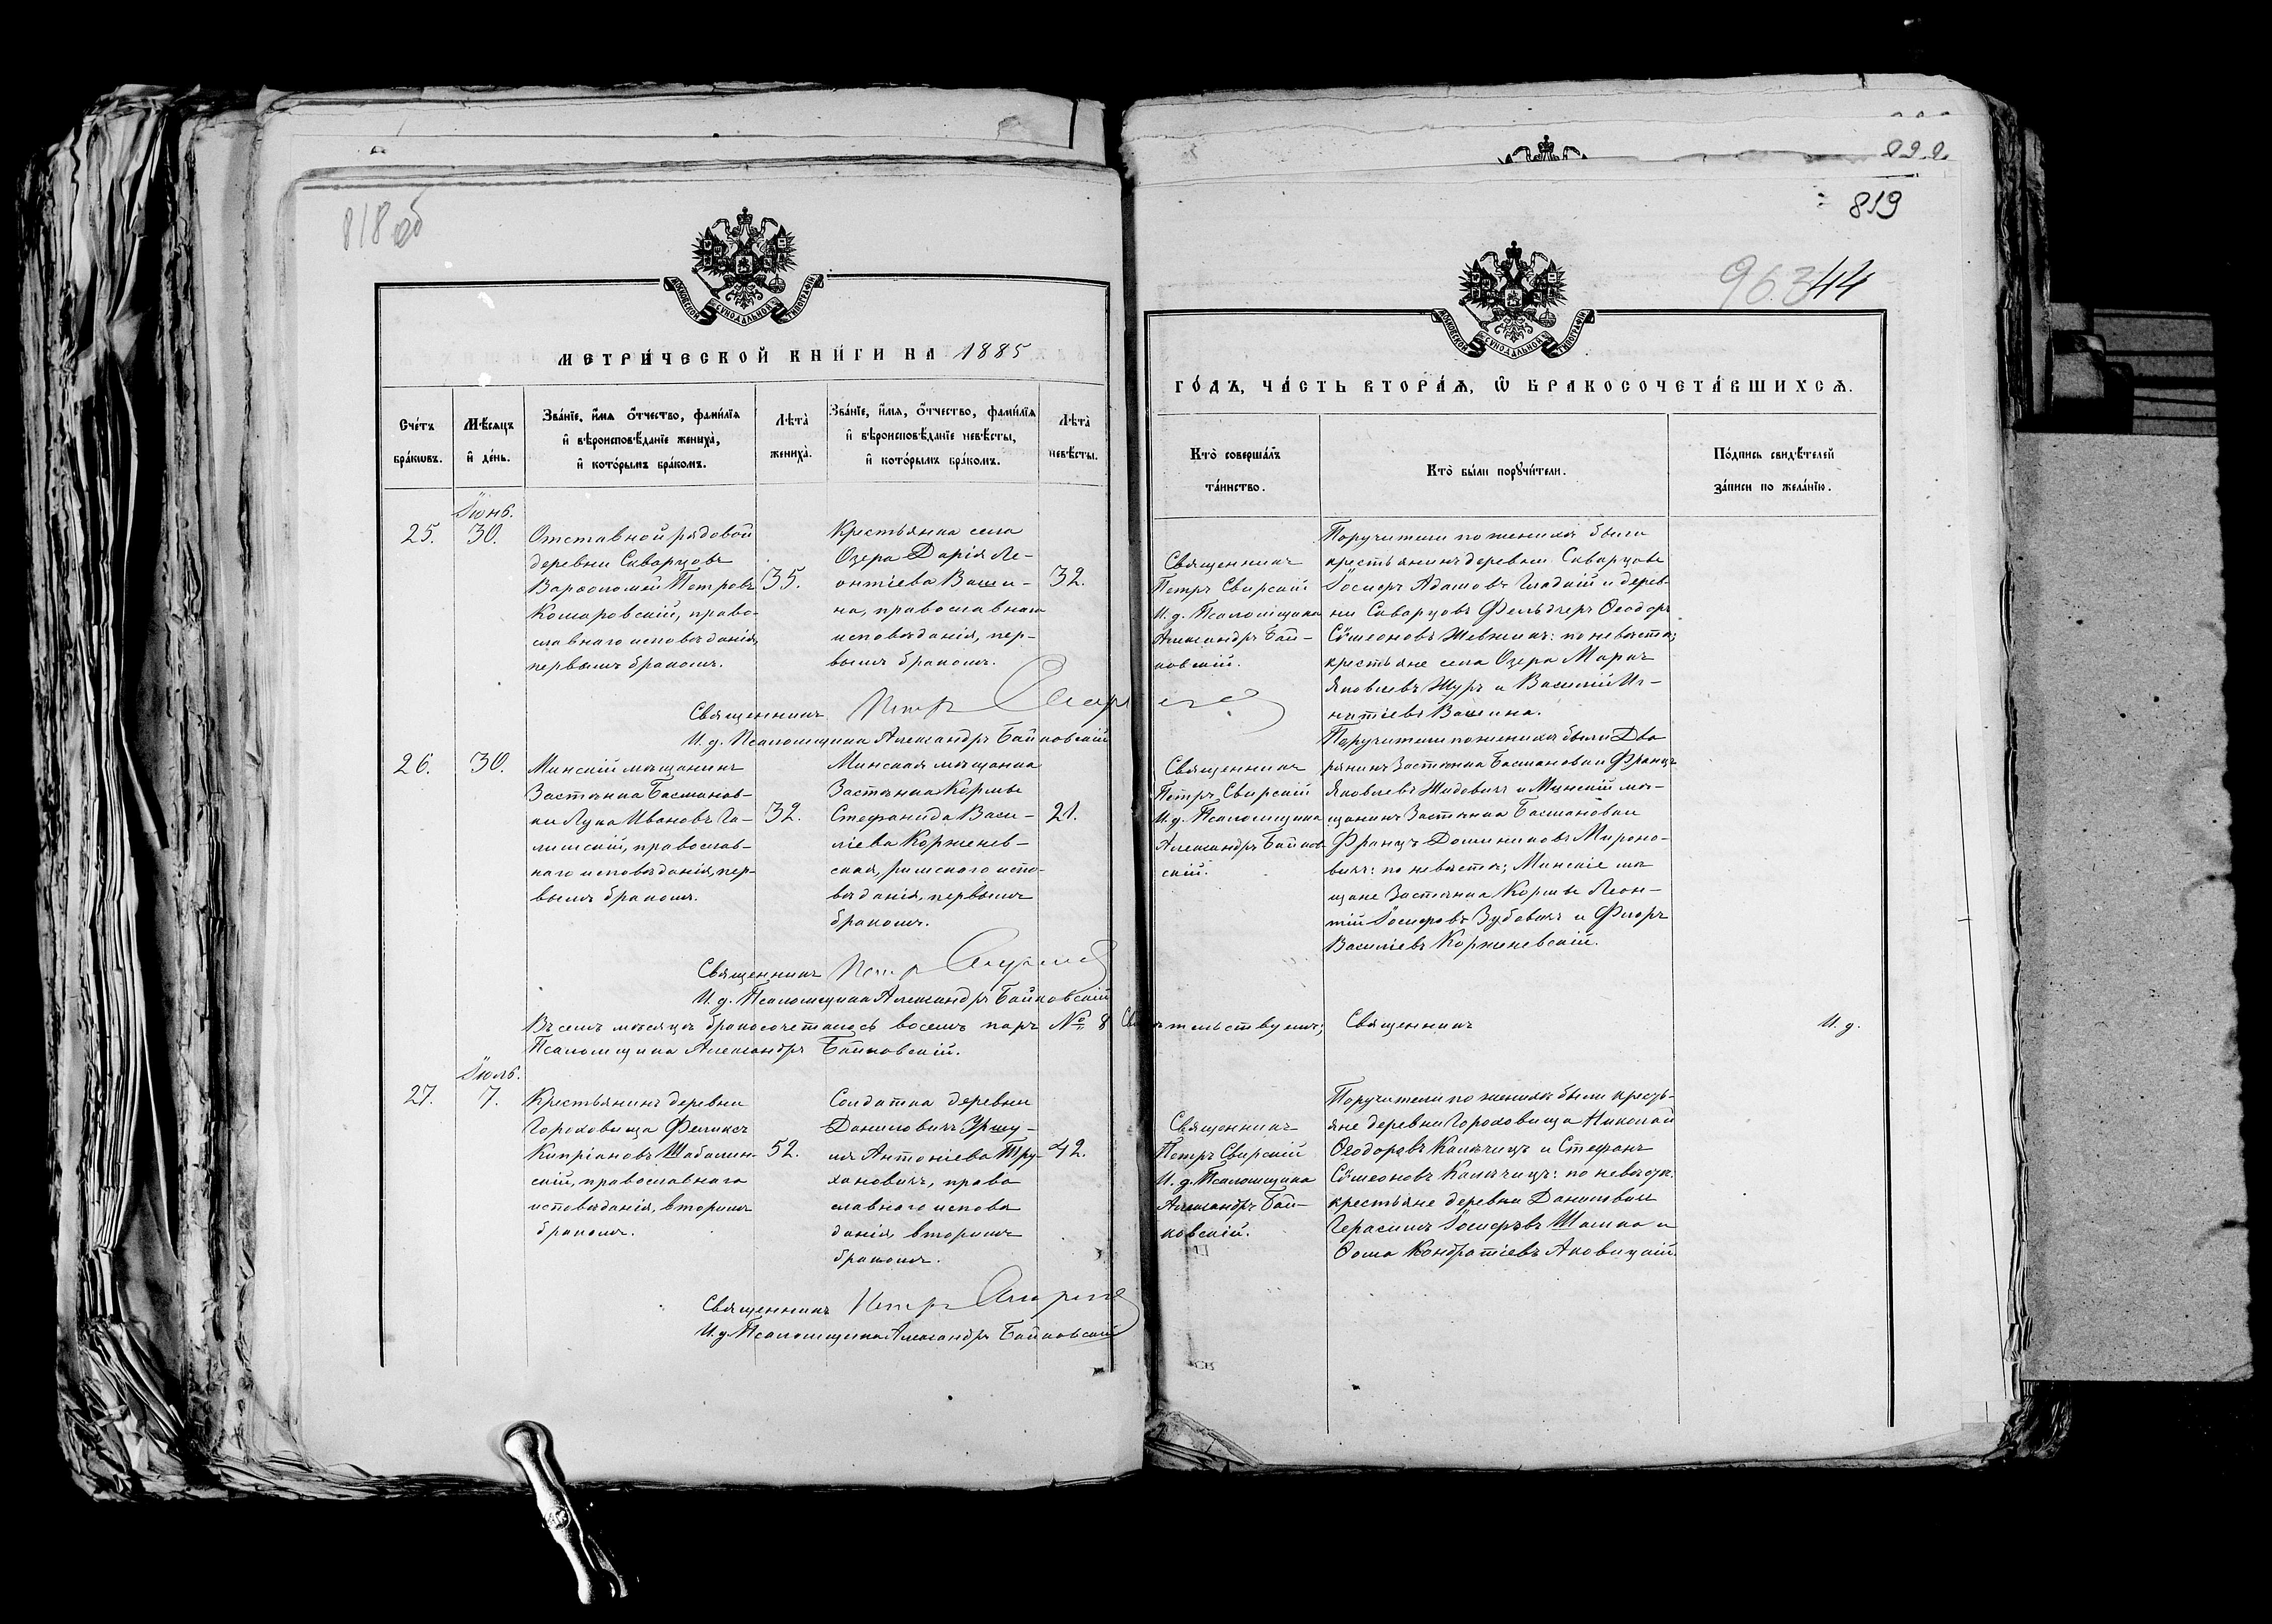 818 об
819
963 44
МОСКОВСКОЙ СѴНОДАЛЬНОЙ ТИПОГРАФІИ
МОСКОВСКОЙ СѴНОДАЛЬНОЙ ТИПОГРАФІИ
МЕТРИ́ЧЕСКОЙ КНИ́ГИ НА 1885
ГО́ДЪ, ЧА́СТЬ ВТОРА́Ѧ, Ѿ БРАКОСОЧЕТА́ВШИХСѦ.
Сче́тъ
бра́ковъ.
Мѣ́сяцъ
и҆ де́нь.
Зва́нїе, и҆́мя ѻ҆́тчество, фами́лїя
и҆ вѣроисповѣ́данїе жениха̀,
и҆ кото́рымъ бра́комъ.
Лѣта̀
жениха̀.
Зва́нїе, и҆́мя, ѻ҆́тчество, фами́лїя
и҆ вѣроисповѣ́данїе невѣ́сты,
и҆ кото́рымъ бра́комъ.
Лѣта̀
невѣ́сты.
Кто̀ соверша́лъ
та́инство.
Кто̀ бы́ли порꙋчи́тели.
По́дпись свидѣ́телей
за́писи по жела́нїю.
Іюнь.
25.
30.
Отставной рядовой
деревни Скварцовъ
Варѳоломей Петровъ
Комаровскій, право-
славнаго исповѣданія,
первымъ бракомъ.
35.
Крестьянка села
Озера Дарія Ле-
онтіева Ваши-
на, православнаго
исповѣданія, пер-
вымъ бракомъ.
32.
Священникъ
Петръ Свирскій
И. д. Псаломщика
Александръ Бай-
ковскій.
Поручители по женихѣ были
крестьянинъ деревни Скварцовъ
Іосифъ Адамовъ Гладкій и дерев-
ни Скварцовъ Фельдчеръ Ѳеодоръ
Сѵмеоновъ Шевчикъ: по невѣстѣ;
крестьяне села Озера Маркъ
Яковлевъ Шуръ и Василій Иг-
натіевъ Вашина.
Священникъ Петръ Свирскій
И. д. Псаломщика Александръ Байковскій
26.
30.
Минскій мѣщанинъ
Застѣнка Басманов-
ки Лука Ивановъ Га-
лимскій, православ-
наго исповѣданія, пер-
вымъ бракомъ.
32.
Минская мѣщанка
Застѣнка Кормы
Стефанида Васи-
ліева Корженев-
ская, римскаго испо-
вѣданія, первымъ
бракомъ.
21.
Священникъ
Петръ Свирскій
И. д. Псаломщика
Александръ Байков-
скій.
Поручители по женихѣ были Дво
рянинъ Застѣнка Басмановки Францъ
Яковлевъ Жидовичъ и Минскій мѣ-
щанинъ Застѣнка Басмановки
Францъ Доминиковъ Мироно-
вичъ: по невѣстѣ; Минскіе мѣ
щане Застѣнка Кормы Леон-
тій Іосифовъ Зубовичъ и Флоръ
Василіевъ Корженевскій.
Священникъ Петръ Свирскій
И. д. Псаломщика Александръ Байковскій
Въ семъ мѣсяцѣ бракосочеталось восемь паръ № 8 Свидѣтельствуемъ; Священникъ И. д.
Псаломщика Александръ Байковскій.
Іюль.
27.
7.
Крестьянинъ деревни
Гороховища Феликсъ
Кипріановъ Шабалин-
скій, православнаго
исповѣданія, вторымъ
бракомъ.
52.
Солдатка деревни
Даниловичъ Уршу-
ля Антоніева Тру-
хановичъ, право
славнаго исповѣ
данія, вторымъ
бракомъ.
42.
Священникъ
Петръ Свирскій
И. д. Псаломщика
Александръ Бай-
ковскій.
Поручители по женихѣ были кресть-
яне деревни Гороховища Николай
Ѳеодоровъ Калѣчицъ и Стефанъ
Сѵмеоновъ Калѣчицъ: по невѣстѣ.
крестьяне деревни Даниловичъ
Герасимъ Іосифовъ Шашко и
Ѳома Кондратіевъ Яковицкій.
Священникъ Петръ Свирскій
И. д. Псаломщика Александръ Байковскій